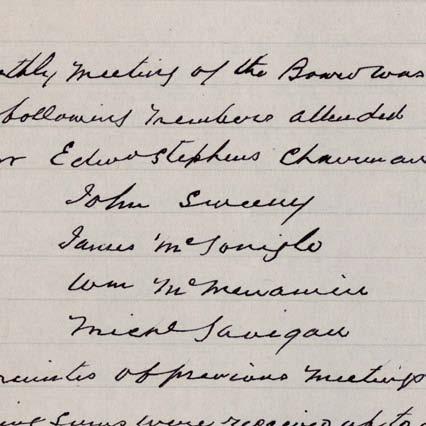 thly Meeting of the Board was
following Members attended
Edwd Stephens Chairman
John Sweeny
James McGonigle
Wm McMenamin
Michl Gavigan
minutes of previous Meeting
Sums were received up to